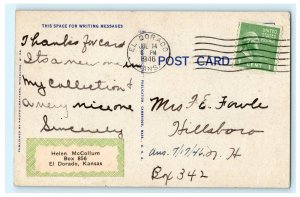 THIS SPACE FOR WRITING MESSAGES
Thanks for card
Its a new one in
my collection &
a very nice one
Sincerely
Helen McCollum
Box 856
El Dorado, Kansas
EL DORADO
JUL 14
6 PM
1946
KANS.
POST CARD
UNITED STATES
POSTAGE
1 CENT 1
Mrs F E Fowle
Hillsboro
ans. 7/17/46 N. H
Bx 342